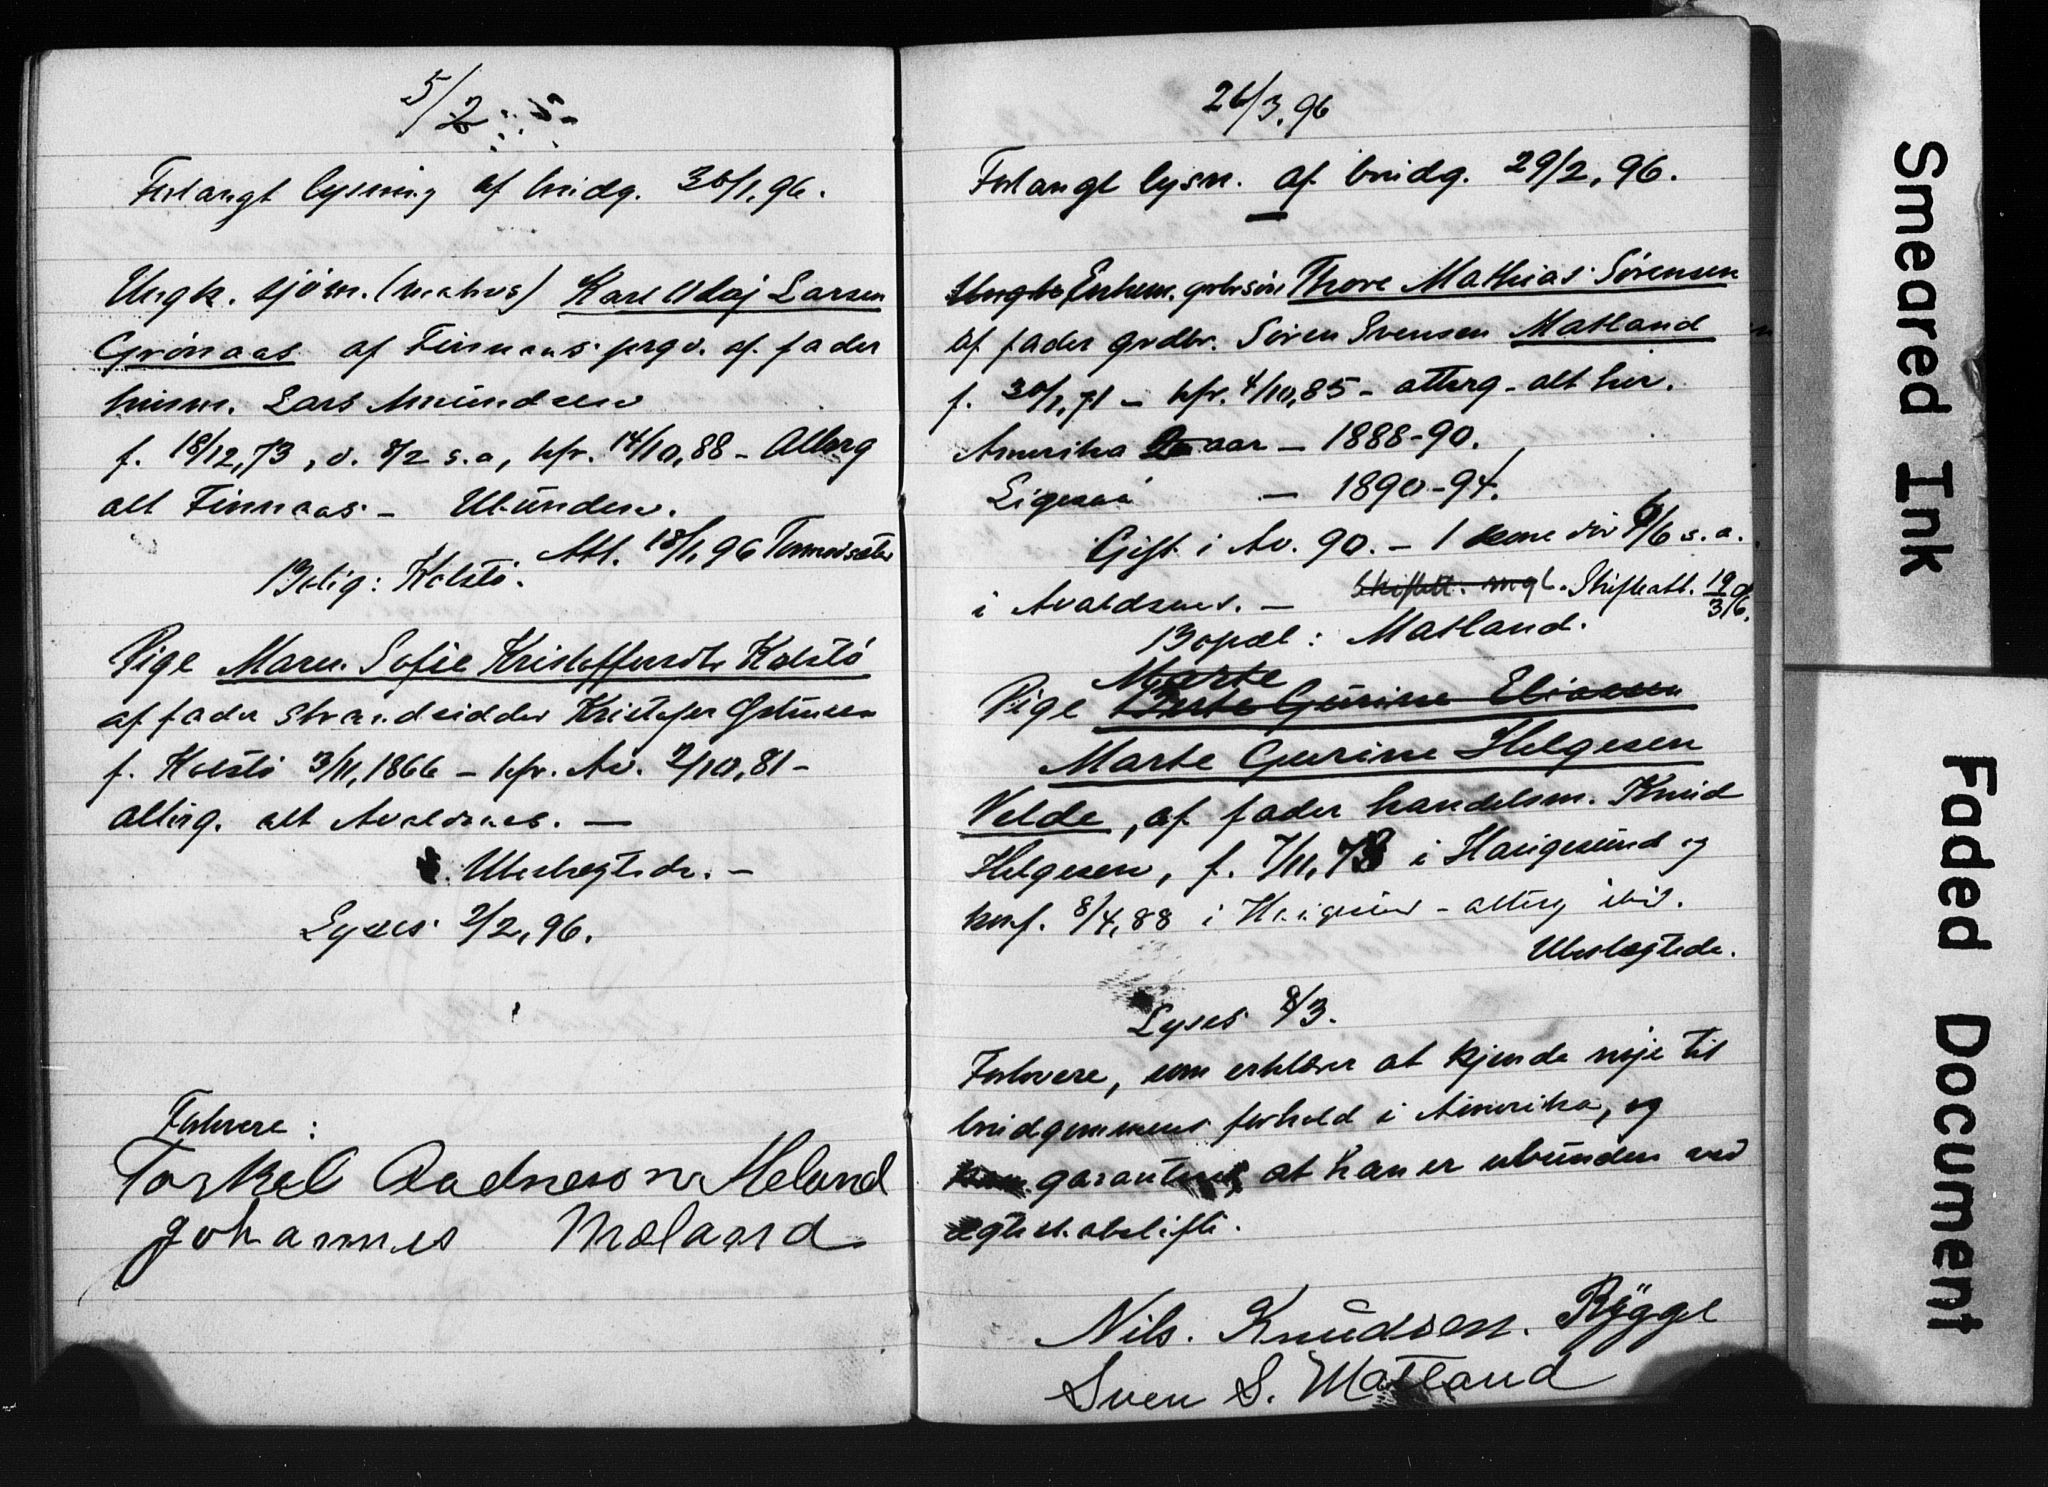 5/2
Forlangt lysning af brudg. 30/1, 96.
Ungk. sjøm. (matros) Karl Olaj Larsen
Grønaas af Finnaas prgd. af fader
husm. Lars Amundsen
f. 18/12, 73, d. 8/2 s.a, kfr. 14/10, 88 - Alterg
alt Finnaas. - Ubunden.
Att. 18/1 96
Bolig: Kolstø.
Pige Maren Sofie Kristoffersdtr Kolstø
af fader strandsidder Kristofer
f. Kolstø 3/11, 1866 - kfr. Av. 2/10, 81 -
alterg. alt Avaldsnes. -
Ubeslægtede. -
Lyses 2/2, 96.
Forlovere:
Torkel Aadneson Meland
Johannes Meland
26/3, 96
Forlangt lysn. af brudg. 29/2, 96.
Enkem. grbrsøn Thore Mathias Sørensen
af fader grdbr. Søren Svensen Matland
f. 30/1, 71 - kfr. 4/10, 85 - altterg - alt her.
Amerika aar - 1888-90.
Ligesaa - 1890-94.
Gift i Av. 90. - 1 døv 6/6 s.a.
i Avaldsnes. - Skifteatt. mgl. Skifteatt. 19/3 96.
Bopæl: Matland.
Marte
Pige Berte Gurine Eliasen
Marte Gurine Helgesen
Velde, af fader handelsm. Knud
Helgesen, f. 7/11, 73 i Haugesund og
konf. 8/4, 88 i Haugesund - alterg ibid.
Ubeslægtede.
Lyses 8/3.
Forlovere, som erklærer at kjende nøje til
brudgommens forhold i Amerika, og
garanterer, at han er ubunden ved
ægteskabslifte.
Nils. Knudsen. Rygge
Sven S. Matland
Smeared Ink
Faded Document